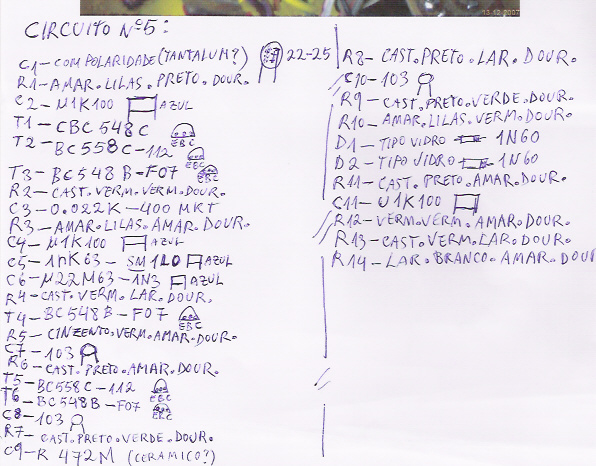 13.12.2007
CIRCUITO Nº5:
C1-COM POLARIDADE (TANTALUM?) 22-25
R1-AMAR.LILAS.PRETO.DOUR.
C2-µ1K100 AZUL
T1-CBC548C
T2-BC558C-112 EBC
T3-BC548B-F07 EBC
R2-CAST.VERM.VERM.DOUR.
C3-0.022K-400 MKT
R3-AMAR.LILAS.AMAR.DOUR.
C4-µ1K100 AZUL
C5-1nK63-SM1L0 AZUL
C6-µ22M63-1N3 AZUL
R4-CAST.VERM.LAR.DOUR.
T4-BC548B-F07 EBC
R5-CINZENTO.VERM.AMAR.DOUR.
C7-103
R6-CAST.PRETO.AMAR.DOUR.
T5-BC558C-112 EBC
T6-BC548B-F07 EBC
C8-103
R7-CAST.PRETO.VERDE.DOUR.
C9-R 472M (CERAMICO?)
R8-CAST.PRETO.LAR.DOUR.
C10-103
R9-CAST.PRETO.VERDE.DOUR.
R10-AMAR.LILAS.VERM.DOUR.
D1-TIPO VIDRO 1N60
D2-TIPO VIDRO 1N60
R11-CAST.PRETO.AMAR.DOUR.
C11-U1K100
R12-VERM.VERM.AMAR.DOUR.
R13-CAST.VERM.LAR.DOUR.
R14-LAR.BRANCO.AMAR.DOUR